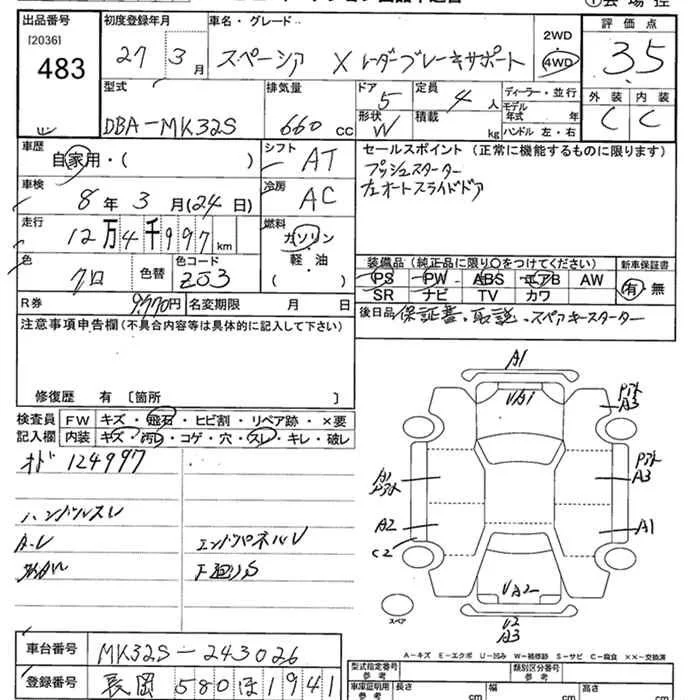 出品番号
[2036]
483
初度登録年月
27 3月
車名・グレード
スペーシア X レーダーブレーキサポート
2WD
4WD
評価点
3.5
外装 内装
C C
型式
DBA-MK32S
排気量
660 CC
ドア
5
形状
W
定員
4人
積載
kg
ディーラー・並行
モデル年式 年
ハンドル 左・右
車歴
自家用・( )
シフト
AT
車検
8年 3月(24日)
冷房
AC
走行
12万4千997km
燃料
ガソリン
軽・油
( )
色
クロ
色替
色コード
ZJ3
R券
9,770円
名変期限 月 日
セールスポイント(正常に機能するものに限ります)
プッシュスターター
左オートスライドドア
装備品(純正品に限り○をつけてください)
PS PW ABS エアB AW
SR ナビ TV カワ
新車保証書
有・無
後日品 保証書、取説、スペアキースターター
注意事項申告欄(不具合内容等は具体的に記入して下さい)
修復歴 有 〔箇所 〕
検査員記入欄
FW キズ・飛石・ヒビ割・リペア跡・×要
内装 キズ・汚レ・コゲ・穴・スレ・キレ・破レ
オド 124997
ハンドルスレ
エンドパネルU
下廻りS
A1
VA1
ドアト
A3
A1
A3
A2
C2
A1
VA2
A3
スペア
A−キズ E−エクボ U−凹み W−補修跡 S−サビ C−腐食 ××−交換済
車台番号
MK32S-243026
登録番号
長岡 580 ほ 1941
型式指定番号
参考
類別区分番号
参考
車庫証明用
参考
長さ
cm
幅
cm
高さ
cm